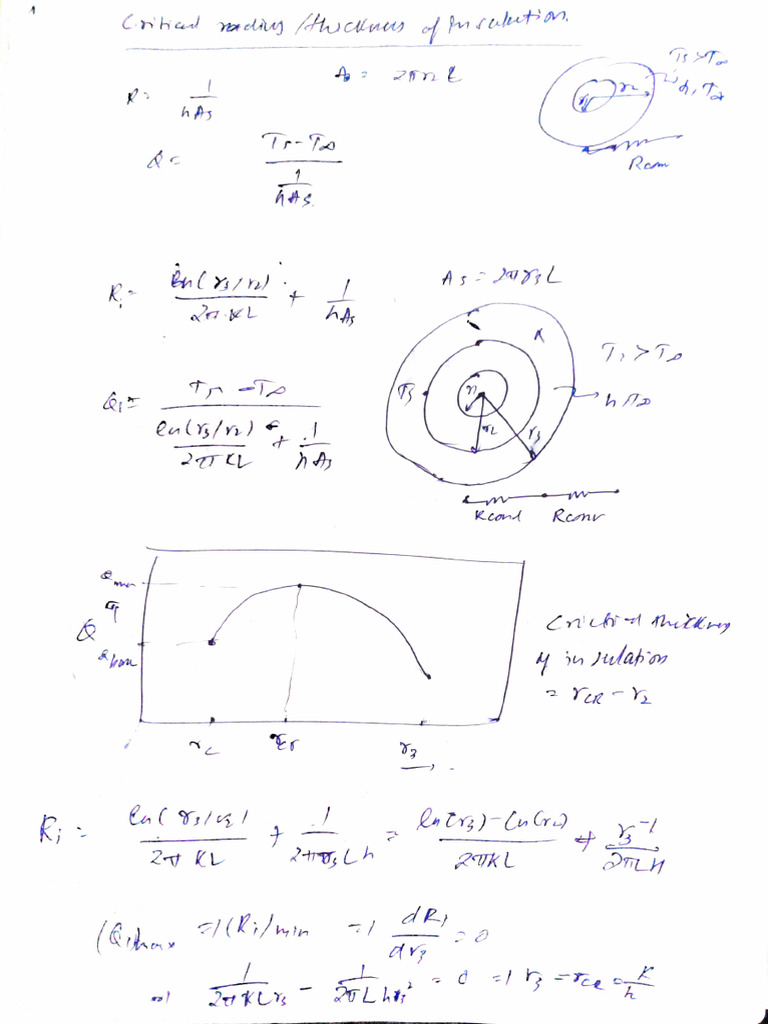 1
Critical radius / thickness of Insulation.
R = 1/hAs
As = 2πr2L
Ts > T∞
h, T∞
r1
r2
Rconv
Q = (Ts - T∞) / (1/hAs)
Ri = ln(r3/r2)/2πKL + 1/hAs
As = 2πr3L
K
Ts > T∞
h T∞
Ts
r1
r2
r3
Qi = (Ts - T∞) / (ln(r3/r2)/2πKL + 1/hAs)
Rcond Rconv
Qmax
Q ↑
Qbare
r2 rcr r3 →
Critical thickness
of insulation
= rCR - r2
Ri = ln(r3/r2)/2πKL + 1/2πr3Lh = (ln(r3) - ln(r2))/2πKL + r3⁻¹/2πLh
(Qi)max ⇒ (Ri)min ⇒ dRi/dr3 = 0
⇒ 1/2πKLr3 - 1/2πLhr3² = 0 ⇒ r3 = rCR = K/h